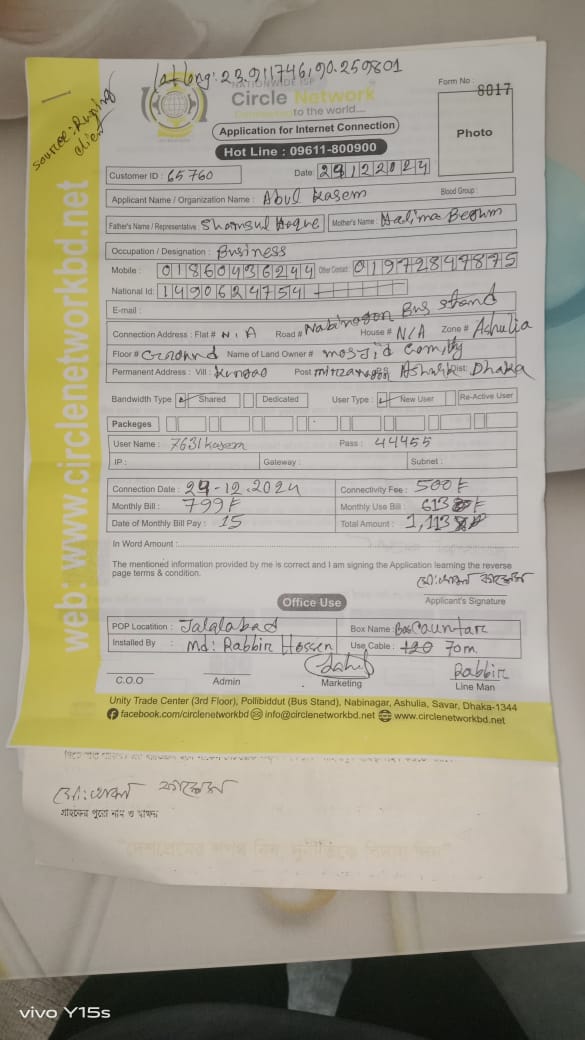 Lat long: 23.911746,90.259801
NATIONWIDE ISP
Circle Network
Connecting to the world....
Form No : 8017
Photo
source:
client
Application for Internet Connection
Hot Line : 09611-800900
Customer ID : 65760
Date 29122024
Applicant Name / Organization Name : Abul Kasem
Blood Group :
Father's Name / Representative Shamsul Hoque
Mother's Name : Halima Begum
Occupation / Designation : Business
Mobile : 01860436244 Other Contact : 01972847875
National Id: 1490624754
E-mail :
Connection Address : Flat # N.A Road # Nabinagar Bus Stand House # N/A Zone # Ashulia
Floor # Ground Name of Land Owner # mosjid Comity
Permanent Address : Vill : Post Ashulia Dist: Dhaka
Bandwidth Type Shared Dedicated User Type : New User Re-Active User
Packeges
User Name : 7631kasem Pass : 44455
IP : Gateway : Subnet :
Connection Date : 29-12.2024 Connectivity Fee : 500৳
Monthly Bill : 799৳ Monthly Use Bill : 613৳
Date of Monthly Bill Pay : 15 Total Amount : 1,113
In Word Amount :
The mentioned information provided by me is correct and I am signing the Application learning the reverse
page terms & condition.
Applicant's Signature
Office Use
POP Locatition : Jalalabad Box Name : Bas Cauntar
Installed By : Md: Rabbir Hossen Use Cable : 120 70m
C.O.O Admin Marketing Rabbir Line Man
Unity Trade Center (3rd Floor), Pollibiddut (Bus Stand), Nabinagar, Ashulia, Savar, Dhaka-1344
facebook.com/circlenetworkbd info@circlenetworkbd.net www.circlenetworkbd.net
web: www.circlenetworkbd.net
গ্রাহকের পুরো নাম ও স্বাক্ষর
vivo Y15s